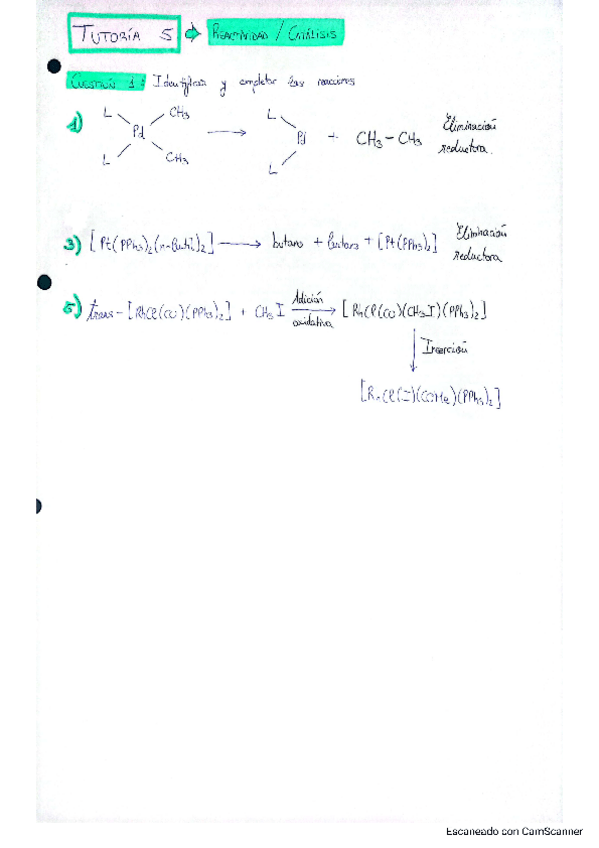 TUTORÍA 5 ⇒ REACTIVIDAD / CATÁLISIS
CUESTIÓN 1: Identificar y completar las reacciones
1) L L Pd CH3 CH3 → L L Pd + CH3-CH3 Eliminación reductora.
3) [Pt(PPh3)2(n-butil)2] → butano + buteno + [Pt(PPh3)2] Eliminación reductora
5) trans-[RhCl(CO)(PPh3)2] + CH3I Adición oxidativa → [RhCl(CO)(CH3I)(PPh3)2]
↓ Inserción
[RhCl(I)(COMe)(PPh3)2]
Escaneado con CamScanner